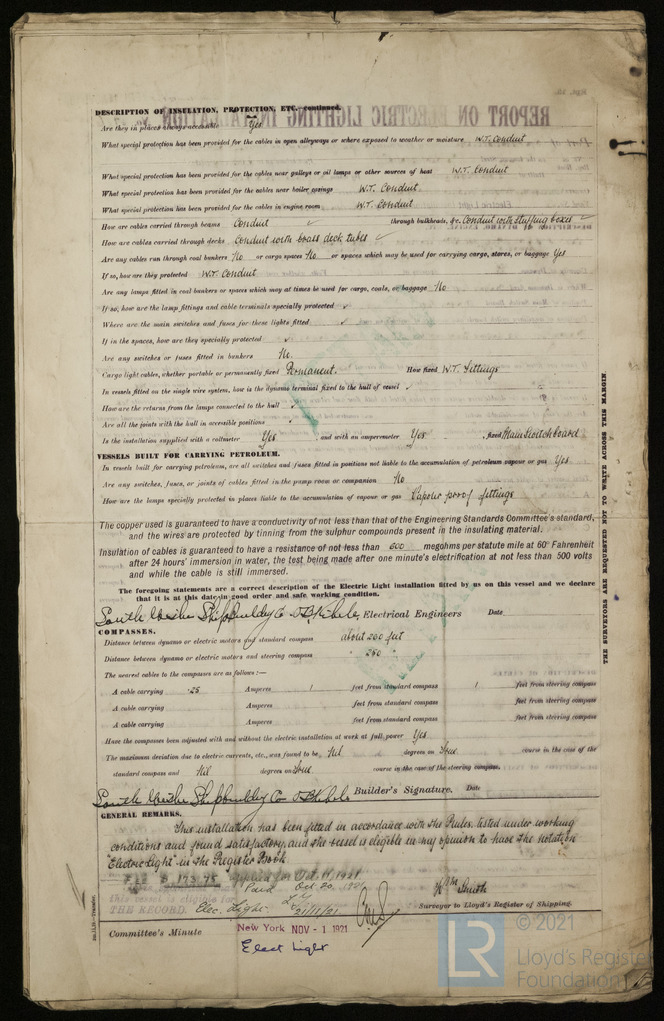 DESCRIPTION OF INSULATION, PROTECTION, ETC.—continued.
Are they in places always accessible Yes
What special protection has been provided for the cables in open alleyways or where exposed to weather or moisture W.T. Conduit
What special protection has been provided for the cables near galleys or oil lamps or other sources of heat W.T. Conduit
What special protection has been provided for the cables near boiler casings W.T. Conduit.
What special protection has been provided for the cables in engine room W.T. Conduit
How are cables carried through beams Conduit ✓ through bulkheads, &c. Conduit with stuffing boxes ✓
How are cables carried through decks Conduit with brass deck tubes ✓
Are any cables run through coal bunkers No or cargo spaces No or spaces which may be used for carrying cargo, stores, or baggage Yes
If so, how are they protected W.T. Conduit
Are any lamps fitted in coal bunkers or spaces which may at times be used for cargo, coals, or baggage No
If so, how are the lamp fittings and cable terminals specially protected ✓
Where are the main switches and fuses for these lights fitted ✓
If in the spaces, how are they specially protected ✓
Are any switches or fuses fitted in bunkers No.
Cargo light cables, whether portable or permanently fixed Permanent. How fixed W.T. Fittings
In vessels fitted on the single wire system, how is the dynamo terminal fixed to the hull of vessel ✓
How are the returns from the lamps connected to the hull ✓
Are all the joints with the hull in accessible positions ✓
Is the installation supplied with a voltmeter Yes. and with an amperemeter Yes. , fixed Main Switchboard
VESSELS BUILT FOR CARRYING PETROLEUM.
In vessels built for carrying petroleum, are all switches and fuses fitted in positions not liable to the accumulation of petroleum vapour or gas Yes
Are any switches, fuses, or joints of cables fitted in the pump room or companion No
How are the lamps specially protected in places liable to the accumulation of vapour or gas Vapour proof fittings
The copper used is guaranteed to have a conductivity of not less than that of the Engineering Standards Committee's standard,
and the wires are protected by tinning from the sulphur compounds present in the insulating material.
Insulation of cables is guaranteed to have a resistance of not less than 600 megohms per statute mile at 60° Fahrenheit
after 24 hours' immersion in water, the test being made after one minute's electrification at not less than 500 volts
and while the cable is still immersed.
The foregoing statements are a correct description of the Electric Light installation fitted by us on this vessel and we declare
that it is at this date in good order and safe working condition.
Shipbuilding Co Electrical Engineers Date
COMPASSES.
Distance between dynamo or electric motors and standard compass about 200 feet
Distance between dynamo or electric motors and steering compass " 250 "
The nearest cables to the compasses are as follows:—
A cable carrying .25 Amperes 1 feet from standard compass 1 feet from steering compass
A cable carrying Amperes feet from standard compass feet from steering compass
A cable carrying Amperes feet from standard compass feet from steering compass
Have the compasses been adjusted with and without the electric installation at work at full power Yes
The maximum deviation due to electric currents, etc., was found to be Nil degrees on course in the case of the
standard compass and Nil degrees on course in the case of the steering compass.
Shipbuilding Co Builder's Signature. Date
GENERAL REMARKS.
This installation has been fitted in accordance with the Rules, tested under working
conditions and found satisfactory, and the vessel is eligible in my opinion to have the notation
"Electric Light" in the Register Book
$ 173.75 Oct 11, 1921
Paid Oct 20, 1921
this vessel is eligible for
THE RECORD. Elec. Light. 21/11/21
Wm Smith
Surveyor to Lloyd's Register of Shipping.
Committee's Minute New York NOV - 1 1921
Elect Light
THE SURVEYORS ARE REQUESTED NOT TO WRITE ACROSS THIS MARGIN.
REPORT ON ELECTRIC LIGHTING INSTALLATION
LR
© 2021
Lloyd's Register
Foundation